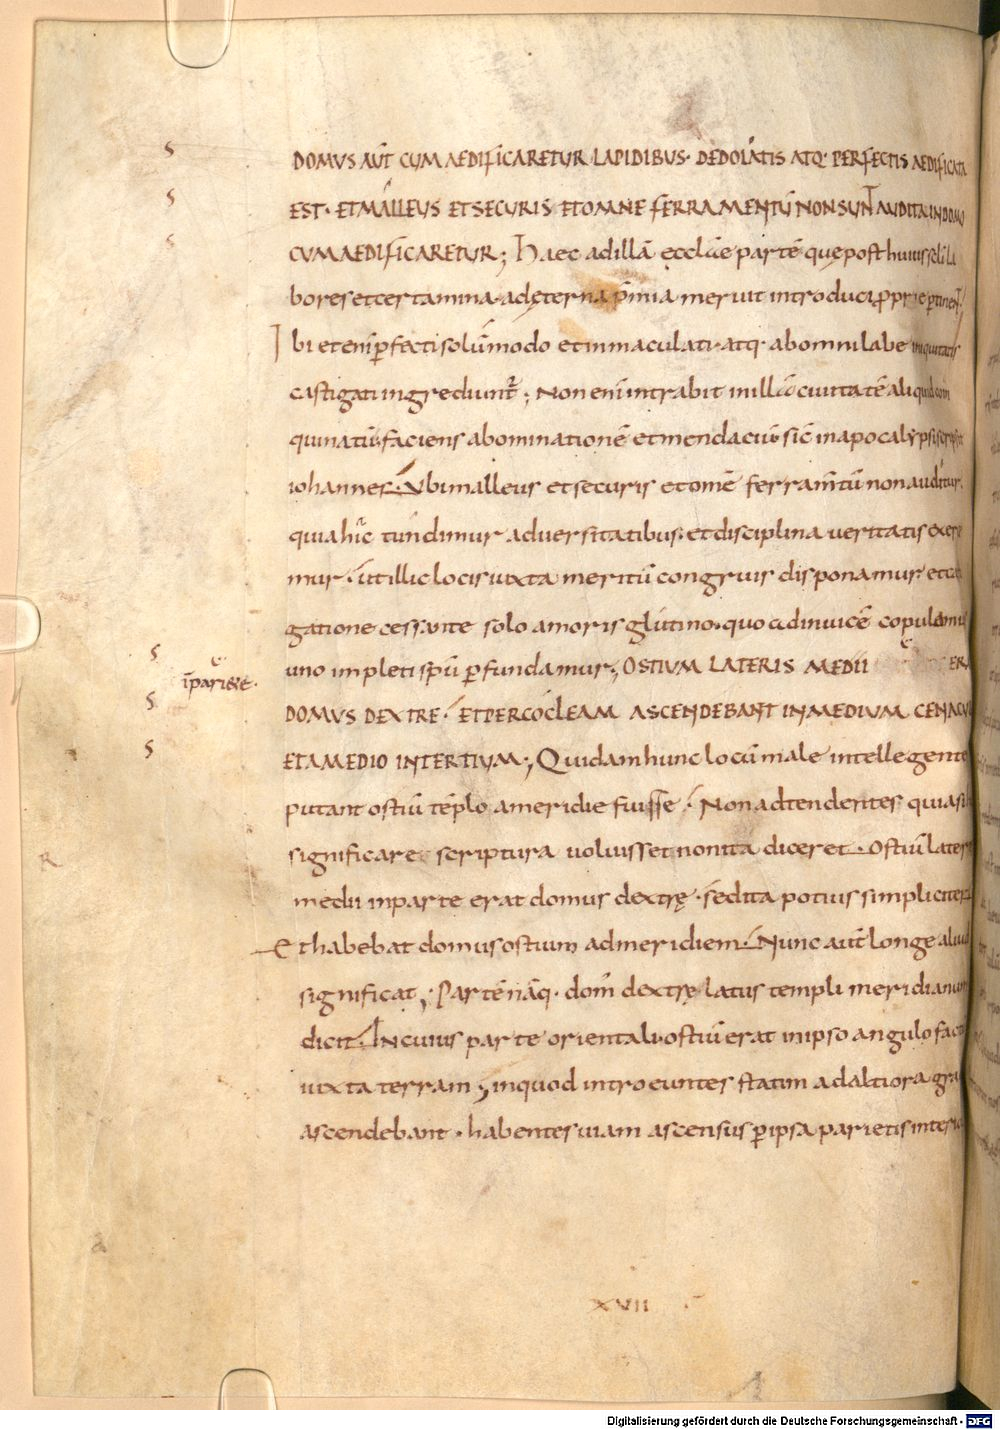 DOMUS AUT̄ CUM AEDIFICARETUR LAPIDIBUS· DEDOLATIS ATQ· PERFECTIS AEDIFICATA
EST· ET MALLEUS ET SECURIS ET OMNE FERRAMENTŪ NON SUNT AUDITA IN DOMO
CUM AEDIFICARETUR; Haec ad illā eccl̄ae partē que post huius sc̄li la
bores et certamina· ad ęterna p̄mia meruit introduci pprie ptinet
Ibi etenī pfecti solū modo et inmaculati atq· ab omni labe iniquitatis
castigati ingrediunt̄; Non enī intrabit in illā civitatē aliquid coin
quinatū· faciens abominationē et mendaciū· sic̄ in apocalypsi scripsit
iohannes· Ubi malleus et securis et om̄e ferram̄tū non auditur·
quia hic tundimur adversitatibus· et disciplina veritatis exere
mur· ut illic locis iuxta meritū congruis disponamur· et
gatione cessante solo amoris glutino· quo ad invicē copulamur
uno impleti sp̄u pfundamur; OSTIUM LATERIS MEDII ERAT
īpariete·
DOMUS DEXTRE· ET PER COCLEAM ASCENDEBANT IN MEDIUM CENACU
ET A MEDIO IN TERTIUM; Quidam hunc locū male intellegente
putant ostiū tēplo a meridie fuisse· Non adtendentes quia si
significare scriptura voluisset non ita diceret· Ostiū lateris
medii in parte erat domus dextrę· sed ita potius simpliciter
Et habebat domus ostium ad meridiem· Nunc aut̄ longe aliud
significat; Partē nāq· dom̄ dextrę latus templi meridianum
dicit· In cuius parte orientali· ostiū erat in ipso angulo factū
iuxta terram; in quod introeuntes statim ad altiora gra
ascendebant· habentes viam ascensus p ipsa parietis interi
XVII
Digitalisierung gefördert durch die Deutsche Forschungsgemeinschaft - DFG